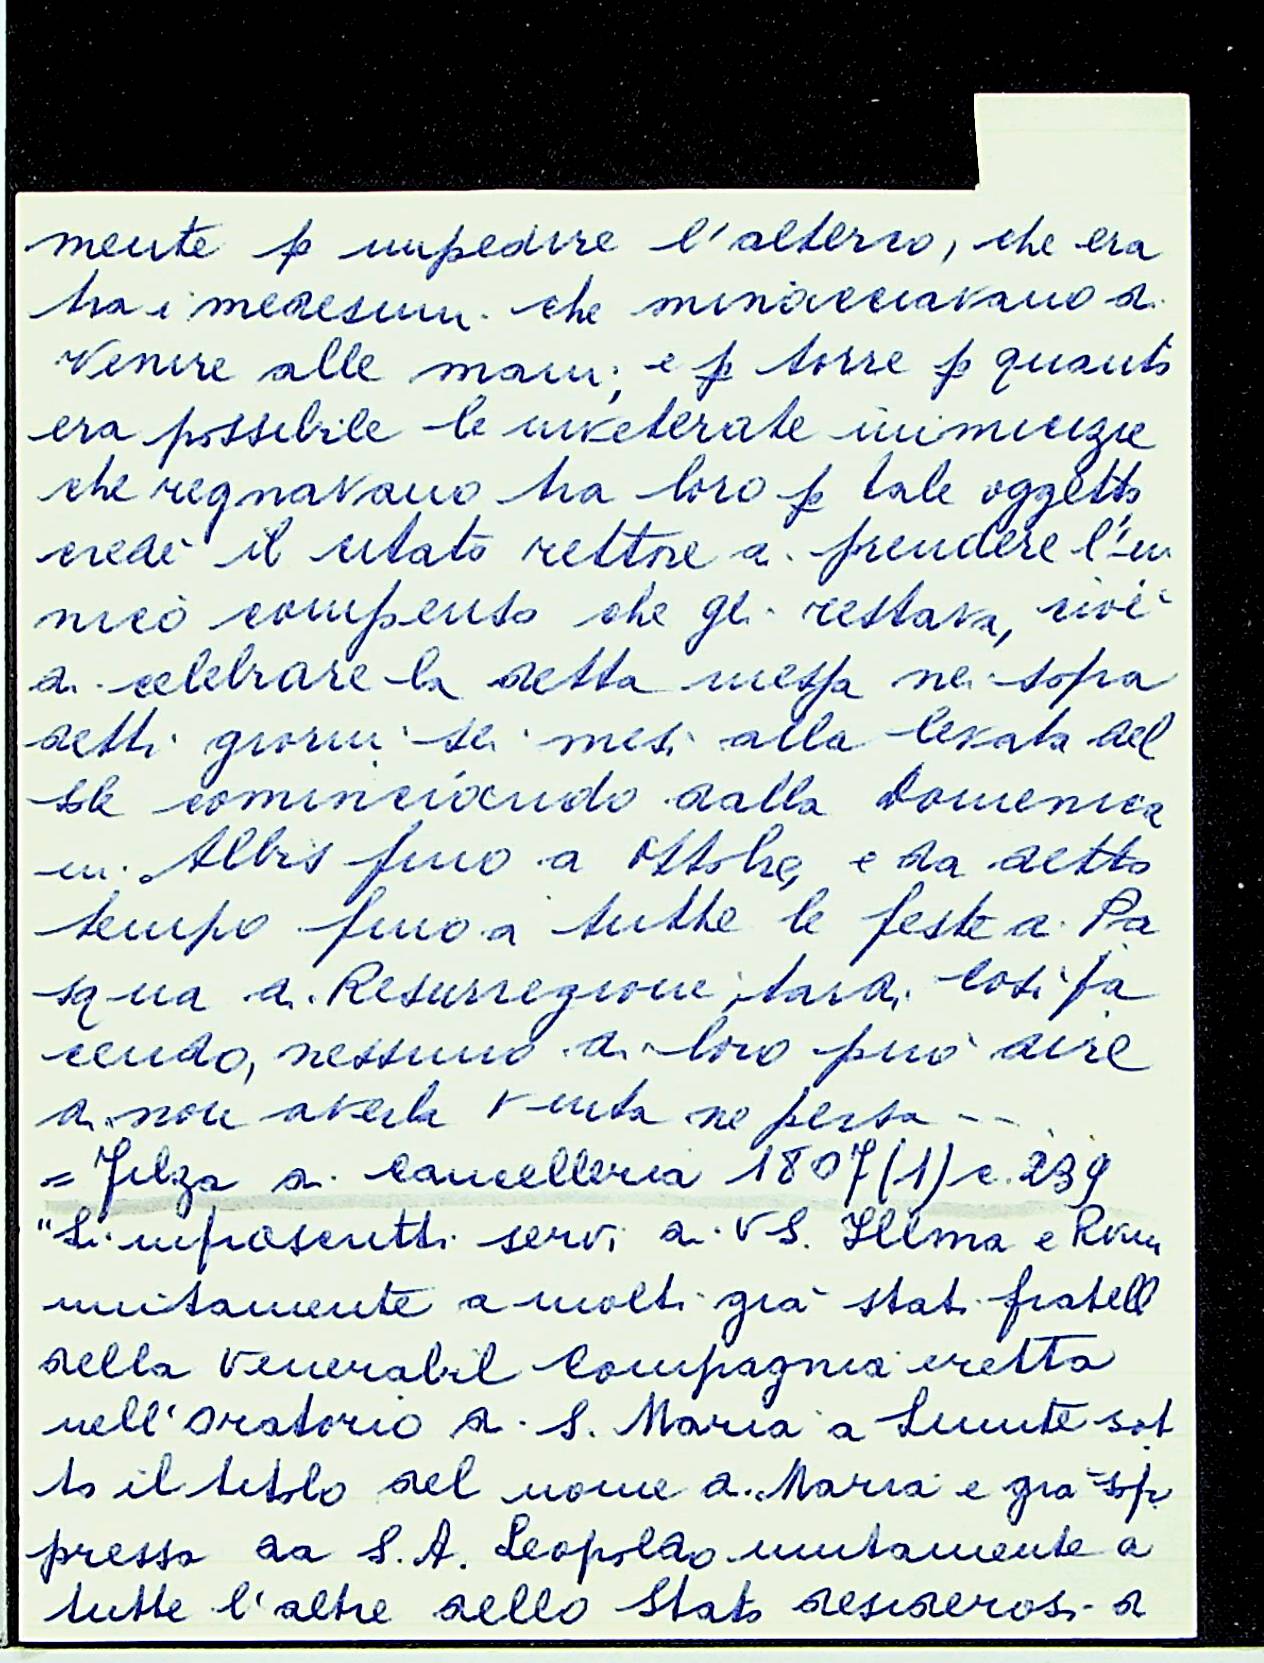 mente p impedire l'alterco, che era
tra i medesimi che minacciavano di
venire alle mani; e p torre p quanto
era possibile le inveterate inimicizie
che regnavano tra loro p tale oggetto,
credè il citato rettore di prendere l'u
nico compenso che gli restava, cioè
di celebrare la detta messa nei sopra
detti giorni sei mesi alla levata del
sole cominciando dalla Domenica
in Albis fino a Ottobre, e da detto
tempo fino a tutte le feste di Pa
squa di Resurrezione, tardi. Così fa
cendo, nessuno di loro può dire
di non averla vinta ne persa --
= Filza di Cancelleria 1807(1) c. 239
"Li infrascritti servi di VS. Illma e Rvm
unitamente a molti già stati fratell
della Venerabil Compagnia eretta
nell'Oratorio di S. Maria a sot
to il titolo del nome di Maria e già sop
pressa da S.A. Leopoldo unitamente a
tutte l'altre dello Stato desiderosi di